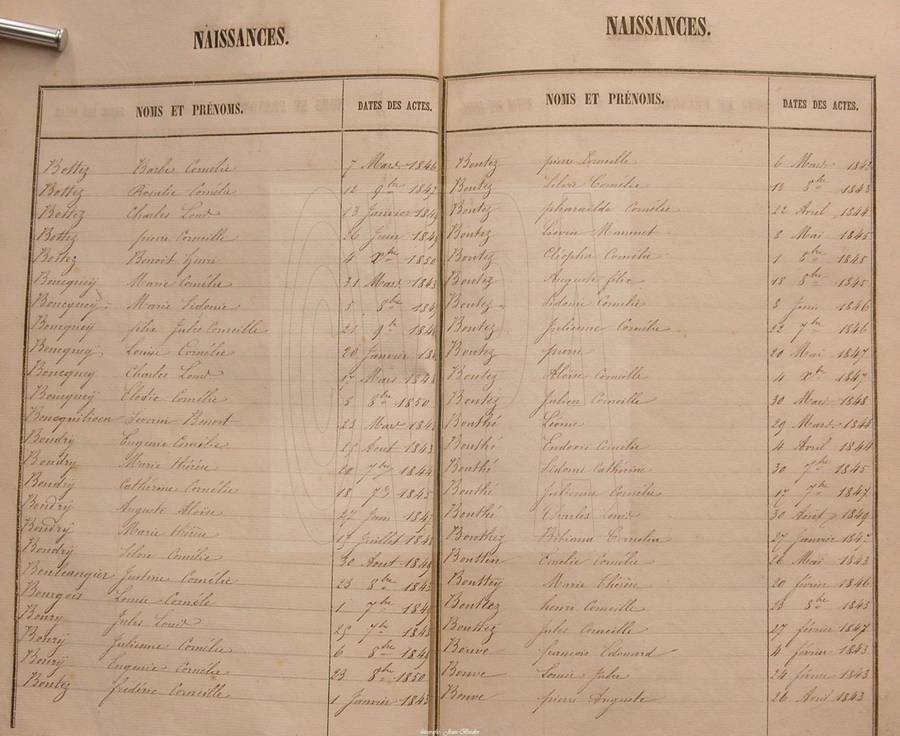 NAISSANCES.
NOMS ET PRÉNOMS. DATES DES ACTES.
Bottez Barbe Cornélie 7 Mars 1846
Bottez Rosalie Cornélie 12 9bre
Bottez Charles Louis 13 Janvier
Bottez pierre Corneille 26 Juin
Bottez Benoit henri 4 Xbre 1850
Boucquey Marie Cornélie 31 Mars 1843
Boucquey Marie Sidonie 5 8bre
Boucquey félix Jules Corneille 21 9bre
Boucquey Louise Cornélie 20 Janvier
Boucquey Charles Louis 17 Mars
Boucquey Elodie Cornélie 5 8bre 1850
Severin Benoit 23 Mars
Boudry Eugenie Cornélie 25 Aout 1843
Boudry Marie thérèse 20 7bre 1844
Boudry Cathérine Cornélie 18 1845
Boudry Auguste Aloïse 27 Juin
Boudry Marie thérèse Juillet
Boudry Silvie Cornélie 30 Aout
Boulangier Justine Cornélie 23 8bre
Bourgois Louise Cornélie 1 7bre
Boury Jules Louis 25 7bre
Boury Julienne Cornélie 6 8bre
Boury Eugenie Cornélie 23 8bre 1850
Boutez frédéric Corneille 1 Janvier 1843
NAISSANCES.
NOMS ET PRÉNOMS. DATES DES ACTES.
Boutez pierre Corneille 6 Mars
Boutez Silvie Cornélie 13 8bre 1843
Boutez pharaïlde Cornélie 22 Avril 1844
Boutez Lievin Mammet 8 Mai 1845
Boutez Cléopha Cornélie 1 8bre 1845
Boutez Auguste félix 18 8bre 1845
Boutez Sidonie Cornélie 8 Juin 1846
Boutez Julienne Cornélie 22 7bre 1846
Boutez pierre 20 Mai 1847
Boutez Aloïse Corneille 4 Xbre 1847
Boutez Julien Corneille 30 Mars 1848
Bouthé Léonie 29 Mars
Bouthé Ludovie Cornélie 4 Avril 1844
Bouthé Sidonie Cathérine 30 7bre 1845
Bouthé Julienne Cornélie 17 7bre 1847
Bouthé Charles Louis 30 Aout 1849
Bouthez Bibianne Cornélie 27 Janvier 1847
Emelie Cornélie 26 Mai 1843
Marie thérèse 20 février 1846
Bouttez henri Corneille 23 8bre 1843
Bouttez Jules Corneille 27 février 1847
Bouve françois Edouard 4 février 1843
Bouve Louise Julie 24 février 1843
Bouve pierre Auguste 26 Avril 1843